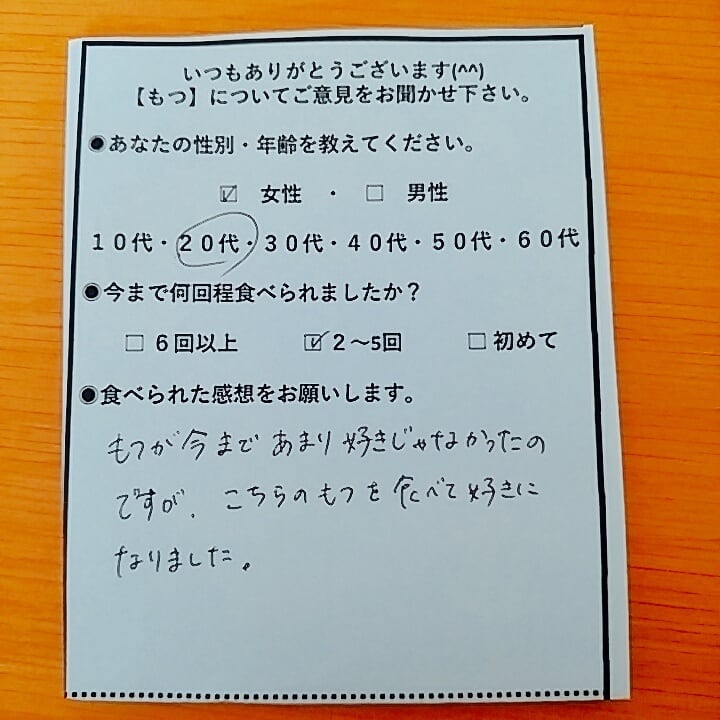 いつもありがとうございます(^^)
【もつ】についてご意見をお聞かせ下さい。
●あなたの性別・年齢を教えてください。
☑ 女性 ・ □ 男性
１０代・２０代・３０代・４０代・５０代・６０代
●今まで何回程食べられましたか？
□ ６回以上 ☑ ２～5回 □ 初めて
●食べられた感想をお願いします。
もつが今まであまり好きじゃなかったの
ですが、こちらのもつを食べて好きに
なりました。